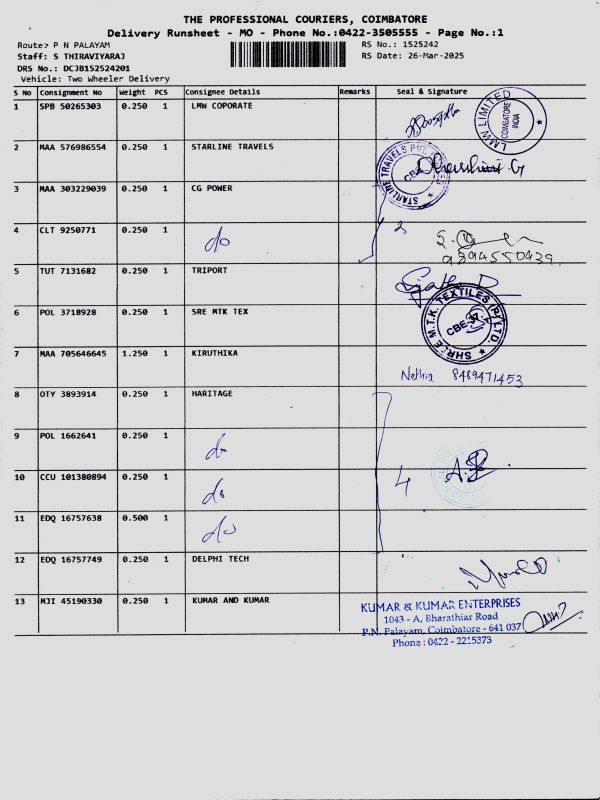 THE PROFESSIONAL COURIERS, COIMBATORE
Delivery Runsheet - MO - Phone No.:0422-3505555 - Page No.:1
Route: P N PALAYAM
RS No.: 1525242
Staff: S THIRAVIYARAJ
RS Date: 26-Mar-2025
DRS No.: DCJB152524201
Vehicle: Two Wheeler Delivery
S No Consignment No Weight PCS Consignee Details Remarks Seal & Signature
1 SPB 50265303 0.250 1 LMW COPORATE
LMW LIMITED
COIMBATORE
INDIA
2 MAA 576986554 0.250 1 STARLINE TRAVELS
STARLINE TRAVELS PVT
3 MAA 303229039 0.250 1 CG POWER
2
4 CLT 9250771 0.250 1 do
5 TUT 7131682 0.250 1 TRIPORT
6 POL 3718928 0.250 1 SRE MTK TEX
SHREE M.T.K. TEXTILES (P) LTD.
CBE-37
7 MAA 705646645 1.250 1 KIRUTHIKA
Nethra 8489471453
8 OTY 3893914 0.250 1 HARITAGE
9 POL 1662641 0.250 1 do
10 CCU 101380894 0.250 1 do
4
11 EDQ 16757638 0.500 1 do
12 EDQ 16757749 0.250 1 DELPHI TECH
13 MJI 45190330 0.250 1 KUMAR AND KUMAR
KUMAR & KUMAR ENTERPRISES
1043 - A, Bharathiar Road
P.N. Palayam, Coimbatore - 641 037
Phone : 0422 - 2215373